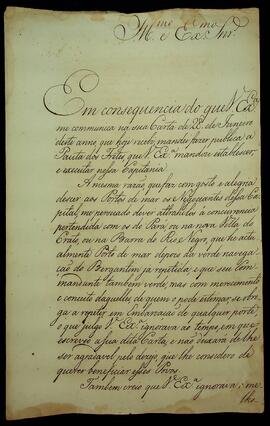 Ill.mo e Ex.mo Snr.
Em consequencia do que V. Ex.a
me communica na sua Carta de 22 de Janeiro
deste anno, que hoje recebi, mandei fazer publica a
Pauta dos Fretes que V. Ex.a mandou estabelecer,
e executar nessa Capitania
A mesma razaõ que faz com gosto e alegria
descer aos Portos de mar os Negociantes dessa Ca-
pital, me persuado dever attrahilos á concurrencia
pertendida com os do Pará, ou na nova Villa do
Crato, ou na Barra do Rio Negro, que he actu-
almente Porto de mar depois da verde navega-
çaõ do Bergantim já repetida; e que seu Com-
mandante tambem verde, mas com merecimento
e conceito daquelles de quem o pode estimar se obri-
ga a repetir em Embarcaçaõ de qualquer porte,
o que julgo V. Ex.a ignorava ao tempo, em que
escreveo a sua dita Carta, e naõ deixará de lhe
ser agradavel pelo dezejo que lhe considero de
querer beneficiar esses Povos.
Tambem creio que V. Ex.a ignorava o me-
lho